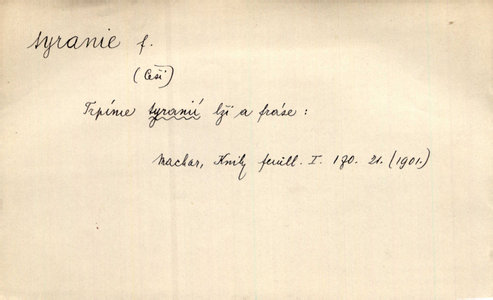 tyranie f.
(Češi)
Trpíme tyranií lží a fráse :
Machar, Knihy feuill. I. 170. 21. (1901.)